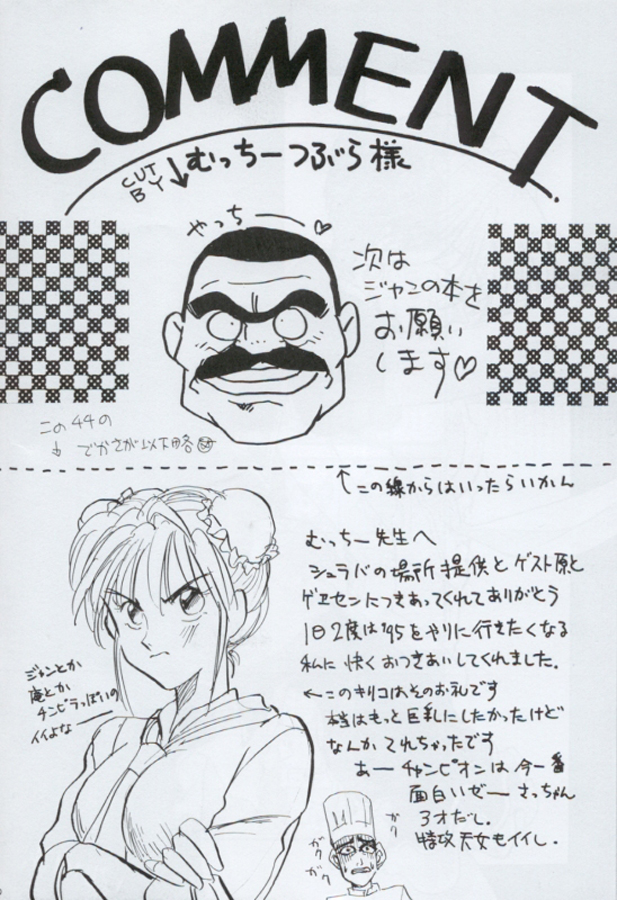 COMMENT
CUT
BY
↓むっちーつぶら様
やっちー♡
次は
ジャンの本を
お願い
します♡
この44の
でかさが以下略
↑この線からはいったらいかん
むっちー先生へ
シュラバの場所提供とゲスト原と
ゲーセンにつきあってくれてありがとう
1日2度は'95をやりに行きたくなる
私に快くおつきあいしてくれました。
←このキリコはそのお礼です
本当はもっと巨乳にしたかったけど
なんかてれちゃったです
あーチャンピオンは今一番
面白いぜーさっちゃん
3才だし.
特攻天女もイイし.
ジャンとか
庵とか
チンピラっぽいの
イイよなー
ガク
ガク
ガク